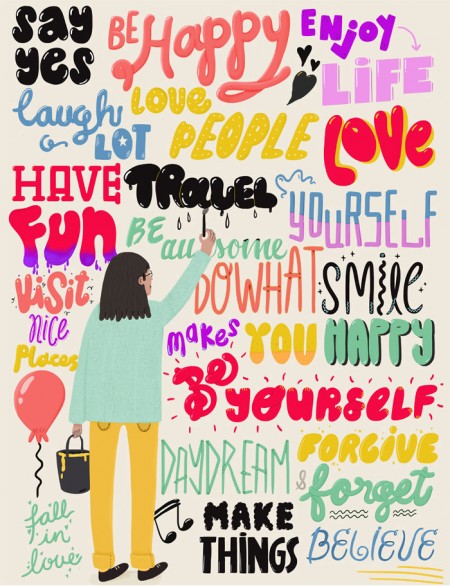 say
yes
BE Happy
ENJOY
LIFE
laugh
a LOT
LOVE
PEOPLE
LOVE
YOURSELF
HAVE
FUN
TRAVEL
BE
awesome
VISIT
NICE
Places
DO WHAT
makes YOU HAPPY
SMILE
Be
YOURSELF
DAYDREAM
FORGIVE
& forget
fall
in
love
MAKE
THINGS
BELIEVE